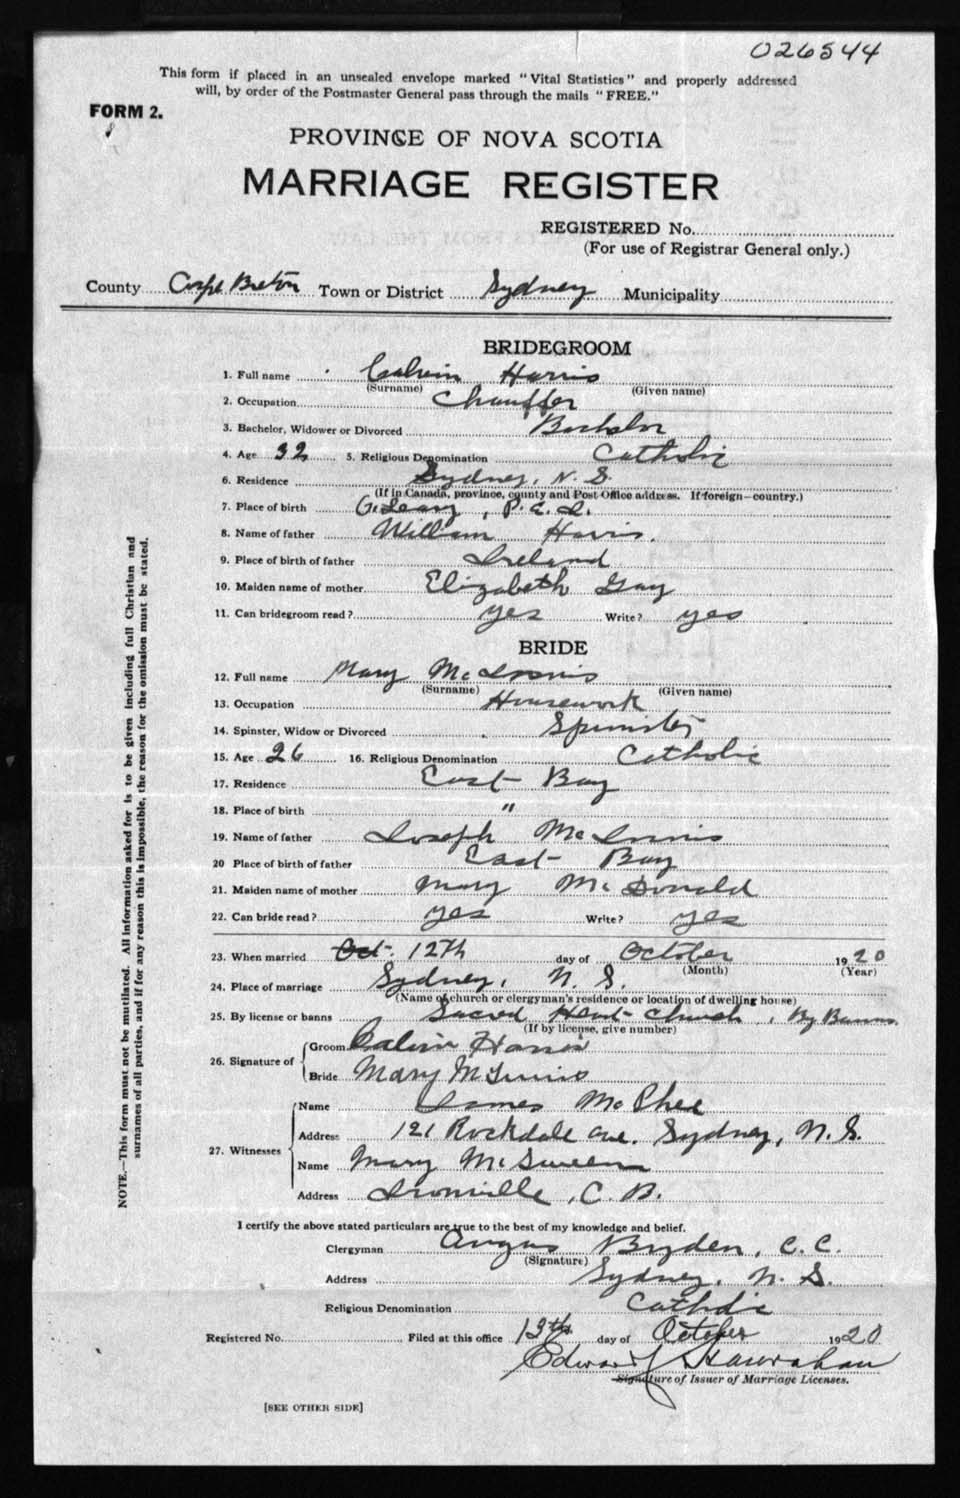 026544
This form if placed in an unsealed envelope marked "Vital Statistics" and properly addressed
will, by order of the Postmaster General pass through the mails "FREE."
FORM 2.
PROVINCE OF NOVA SCOTIA
MARRIAGE REGISTER
REGISTERED No.
(For use of Registrar General only.)
County Cape Breton Town or District Sydney Municipality
BRIDEGROOM
1. Full name Calvin Harris
(Surname) (Given name)
2. Occupation Chauffer
3. Bachelor, Widower or Divorced Bachelor
4. Age 32 5. Religious Denomination Catholic
6. Residence Sydney, N. S.
(If in Canada, province, county and Post Office address. If foreign—country.)
7. Place of birth O'Leary, P. E. I.
8. Name of father William Harris.
9. Place of birth of father Ireland
10. Maiden name of mother Elizabeth Gay
11. Can bridegroom read? yes Write? yes
BRIDE
12. Full name Mary McInnis
(Surname) (Given name)
13. Occupation Housework
14. Spinster, Widow or Divorced Spinster
15. Age 26 16. Religious Denomination Catholic
17. Residence East Bay
18. Place of birth "
19. Name of father Joseph McInnis
20 Place of birth of father East Bay
21. Maiden name of mother Mary McDonald
22. Can bride read? yes Write? yes
23. When married Oct. 12th day of October 1920
(Month) (Year)
24. Place of marriage Sydney, N. S.
(Name of church or clergyman's residence or location of dwelling house)
25. By license or banns Sacred Heart Church, By Banns
(If by license, give number)
26. Signature of Groom Calvin Harris
Bride Mary McInnis
27. Witnesses Name James McPhee
Address 121 Rockdale Ave. Sydney, N. S.
Name Mary McSween
Address Ironville, C. B.
I certify the above stated particulars are true to the best of my knowledge and belief.
Clergyman Angus Bryden, C. C.
(Signature)
Address Sydney, N. S.
Religious Denomination Catholic
Registered No. Filed at this office 13th day of October 1920
Edward J Hanrahan
Signature of Issuer of Marriage Licenses.
[SEE OTHER SIDE]
NOTE.—This form must not be mutilated. All information asked for is to be given including full Christian and
surnames of all parties, and if for any reason this is impossible, the reason for the omission must be stated.